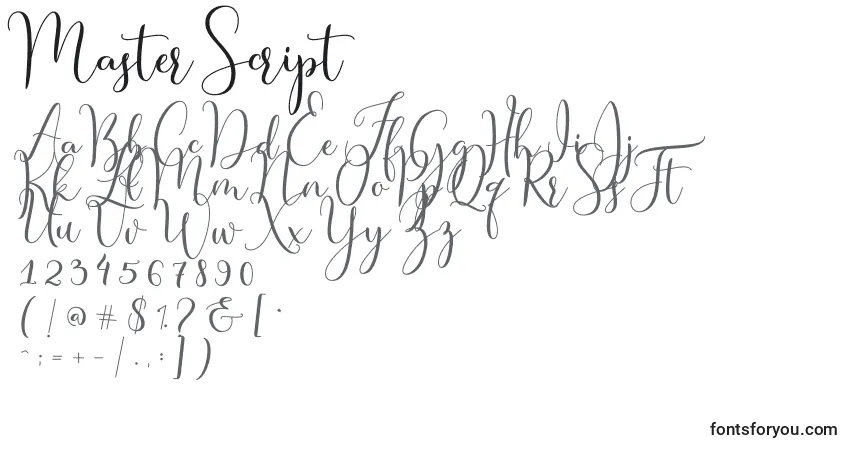 Master Script
Aa Bb Cc Dd Ee Ff Gg Hh Ii Jj
Kk Ll Mm Nn Oo Pp Qq Rr Ss Tt
Uu Vv Ww Xx Yy Zz
1234567890
( ! @ # $ 1 . ? & [ ·
^ ; = + - / . , : ] )
fontsforyou.com